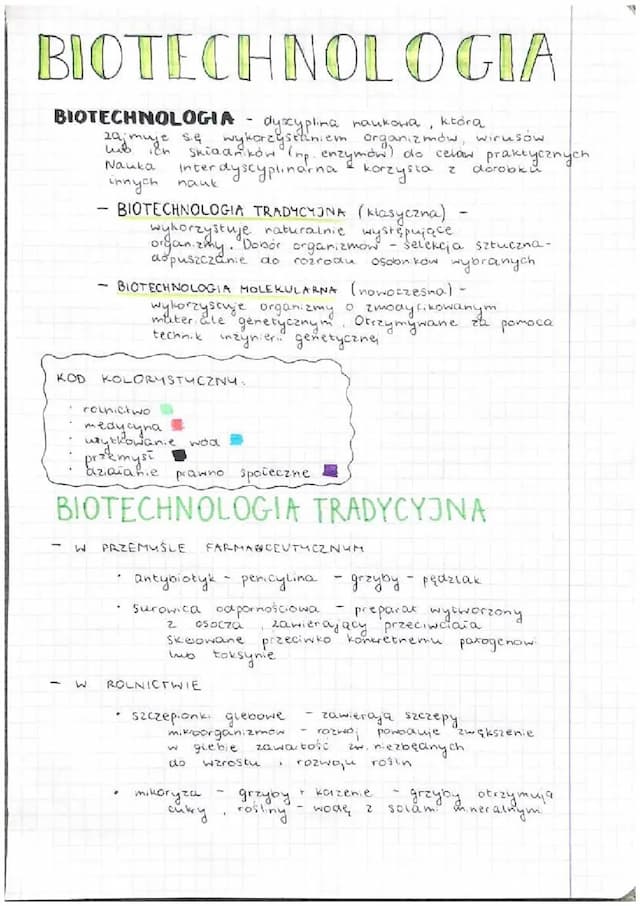 BIOTECHNOLOGIA
BIOTECHNOLOGIA - dyscyplina naukowa, która
zajmuje się wykorzystaniem organizmów, wirusów
lub ich składników (np. enzymów) do celów praktycznych
Nauka interdyscyplinarna - korzysta z dorobku
innych nauk
- BIOTECHNOLOGIA TRADYCYJNA (klasyczna) -
wykorzystuje naturalnie występujące
organizmy. Dobór organizmów - selekcja sztuczna -
dopuszczanie do rozrodu osobników wybranych
- BIOTECHNOLOGIA MOLEKULARNA (nowoczesna) -
wykorzystuje organizmy o zmodyfikowanym
materiale genetycznym. Otrzymywane za pomocą
technik inżynierii genetycznej
KOD KOLORYSTYCZNY:
• rolnictwo
• medycyna
• użytkowanie wód
• przemysł
• działanie prawno społeczne
BIOTECHNOLOGIA TRADYCYJNA
- W PRZEMYŚLE FARMACEUTYCZNYM
• antybiotyk - penicylina - grzyby - pędzlak
• surowica odpornościowa - preparat wytworzony
z osocza, zawierający przeciwciała
skierowane przeciwko konkretnemu patogenowi
lub toksynie
- W ROLNICTWIE
• szczepionki glebowe - zawierają szczepy
mikroorganizmów - rozwój powoduje zwiększenie
w glebie zawartość zw. niezbędnych
do wzrostu i rozwoju roślin
• mikoryza - grzyby + korzenie - grzyby otrzymują
cukry, rośliny - wodę z solami mineralnymi